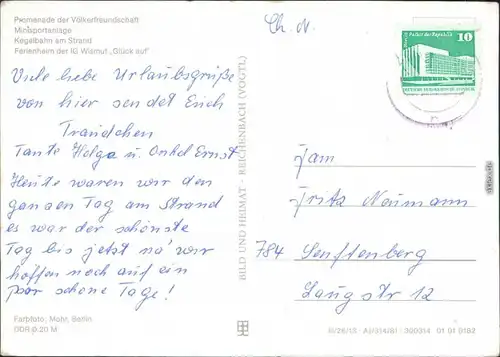 Promenade der Völkerfreundschaft
Minisportanlage
Kegelbahn am Strand
Ferienheim der IG Wismut „Glück auf“
Ch. N.
Palast der Republik
10
Viele liebe Urlaubsgrüße
von hier sendet Euch
Traudchen
Tante Helga u. Onkel Ernst
Heute waren wir den
ganzen Tag am Strand
es war der schönste
Tag bis jetzt na' wir
hoffen noch auf ein
par schöne Tage!
BILD UND HEIMAT · REICHENBACH (VOGTL)
Fam
Fritz Naumann
784 Senftenberg
Langstr 12
Farbfoto: Mohr, Berlin
DDR 0,20 M
III/26/13 A1/314/81 300314 01 01 0182